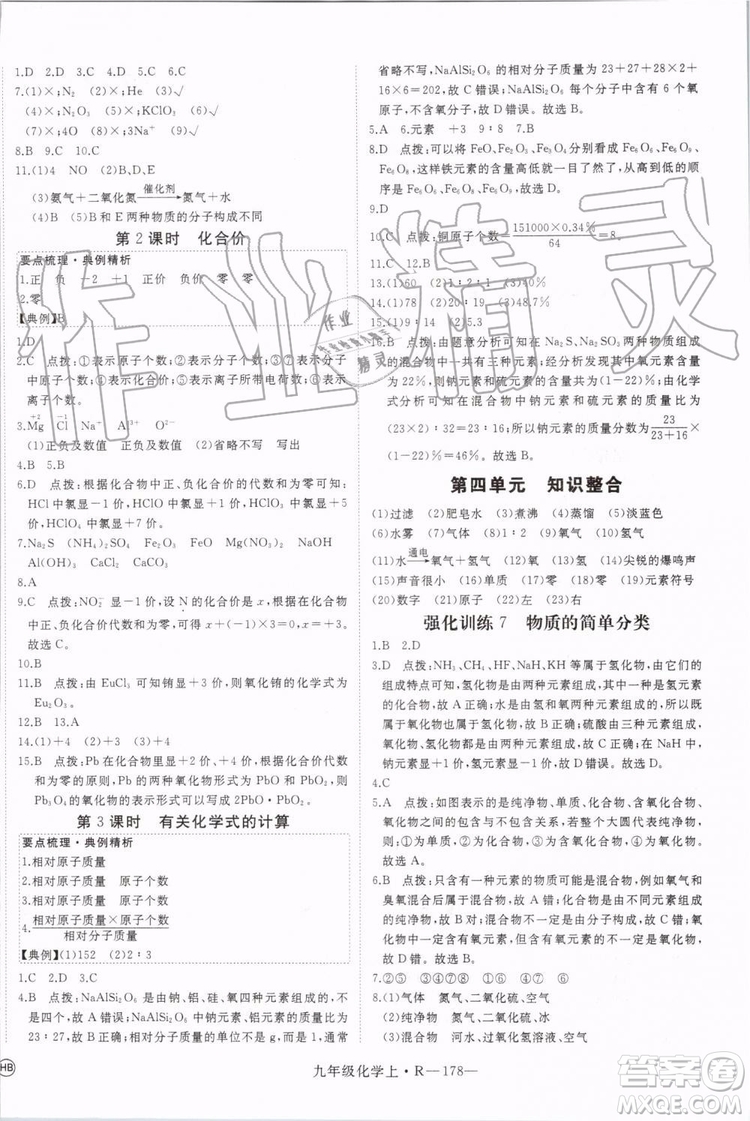 1.D　2.D　3.C　4.D　5.C　6.C
7.(1)×;N₂　(2)×;He　(3)√
(4)×;N₂O₃　(5)×;KClO₃　(6)√
(7)×;4O　(8)×;3Na⁺　(9)√
8.B　9.C　10.C
11.(1)4　NO　(2)B、D、E
(3)氨气＋二氧化氮 催化剂→ 氮气＋水
(4)B　(5)B和E两种物质的分子构成不同
第2课时　化合价
要点梳理·典例精析
1.正　负　－2　＋1　正价　负价　零
2.零
【典例】B
1.D
2.C　点拨:①表示原子个数;②表示分子个数;③表示原子个数;④表示化合价;⑤表示离子所带电荷数;⑥表示离子个数。
3.Mg(＋2)　Cl(－1)　Na⁺　O²⁻
(1)正负及数值　正负及数值　(2)省略不写　写出
4.B　5.B
6.D　点拨:根据化合物中正、负化合价的代数和为零可知:HCl中氯显－1价,HClO中氯显＋1价,HClO₃中氯显＋5价,HClO₄中氯显＋7价。
7.Na₂S　(NH₄)₂SO₄　FeO　Mg(NO₃)₂　NaOH
Al(OH)₃　CaCl₂
8.A
9.C　点拨:NO₂⁻显－1价,设N的化合价是x,根据在化合物中正、负化合价代数和为零可得x＋(－1)×3＝0,则x＝＋3价。
10.B
11.B　点拨:由EuCl₃可知铕显＋3价,则氧化铕的化学式为Eu₂O₃。
12.B　13.A
14.(1)＋3　(2)＋4
15.B　点拨:Pb的化合价只有＋2和＋4,根据化合价代数和为零的原则,Pb的两种氧化物形式为PbO和PbO₂,故Pb₃O₄的氧化物的表示形式为2PbO·PbO₂。
第3课时　有关化学式的计算
要点梳理·典例精析
1.相对原子质量
2.相对原子质量　原子个数
3.相对原子质量　原子个数
4.相对原子质量×原子个数/相对分子质量
【典例】(1)152　(2)2∶3
1.C　2.D　3.C
4.B　点拨:NaAlSi₂O₆由钠、铝、硅、氧四种元素组成,故A错误;NaAlSi₂O₆中钠元素和铝元素的质量比为23∶27,故B正确;相对分子质量的单位不是g,而是1,通常
省略不写,NaAlSi₂O₆的相对分子质量为23＋27＋28×2＋16×6＝202,故C错误;NaAlSi₂O₆的一个分子中含有6个氧原子,故D错误。故选B。
5.A　6.元素　＋3　9∶8　7.B
8.D　点拨:可以将FeO、Fe₂O₃、Fe₃O₄变形为Fe₆O₆、Fe₆O₉、Fe₆O₈,这样铁元素的含量就一目了然了,从高到低的顺序是Fe₆O₆、Fe₆O₈、Fe₆O₉,故选D。
9.D
10.C　点拨:铜原子个数＝151000×0.34%/64＝8。
11.B　12.C
13.(1)60　(2)1∶2∶1　(3)46.7%
14.(1)78　(2)1∶2　(3)41%
15.(1)9∶4　(2)5.3
16.B　点拨:由题意分析可知在Na₂S、Na₂SO₃两种物质的混合物中共含有三种元素;经分析知其中氧元素的质量分数为22%,则钠元素和硫元素占(1－22)%;由化学式可知在混合物中钠元素在钠、硫元素中的质量比为(23×2)∶32＝23∶16,则混合物中钠元素的质量分数为23/(23＋16)×(1－22)%＝46%。故选B。
第四单元　知识整合
(1)过滤　(2)肥皂水　(3)煮沸　(4)蒸馏　(5)淡蓝色
(6)水雾　(7)气体　(8)1∶2　(9)氧气　(10)氢气
(11)水 通电→ 氧气＋氢气　(12)氧　(13)氢　(14)尖锐的爆鸣声
(15)声音很小　(16)质量　(17)零　(18)零　(19)元素符号
(20)数字　(21)原子　(22)左　(23)右
强化训练7　物质的简单分类
1.B　2.D
3.D　点拨:NH₃、CH₄、HF、NaH、KH等属于氢化物,由它们的组成特点可知,氢化物是由两种元素组成,其中一种元素是氢元素的化合物,故A正确;水是由氢、氧两种元素组成的,所以既属于氢化物,又属于氧化物,故B正确;硫酸由三种元素组成,而氢化物由两种元素组成,故C正确;在NaH中,钠元素显＋1价,氢元素显－1价,故D错误。
4.C
5.A　点拨:如图表示的是纯净物、单质、含氧化合物、氧化物之间的包含与不包含关系,若整个大圆代表纯净物,则:①为单质,②为化合物,③为含氧化合物,④为氧化物。故选A。
6.B　点拨:只含有一种元素的物质可能是混合物,例如氧气和臭氧混合后组成的混合物,故A错;化合物一定是由不同元素组成的纯净物,故B对;混合物不一定是由不同元素组成的,故C错;含有氧元素的化合物不一定是氧化物,故D错。
7.②⑤　③⑥　①④⑦⑧　①
8.(1)气体　氮气、二氧化硫、空气
(3)混合物　河水、过氧化氢溶液、空气
HB
九年级化学上·R—178—
作业精灵
作业
精灵
答案圈
MXQE.COM